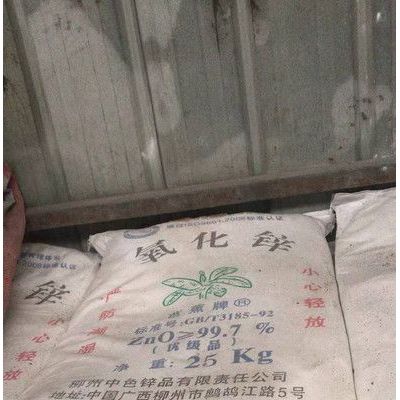 通过ISO9001:2008标准认证
氧化锌
芭蕉牌®
标准号:GB/T3185-92
ZnO≥99.7 %
(优级品)
净重: 25 Kg
柳州中色锌品有限责任公司
地址:中国广西柳州市鹧鸪江路5号
严防潮湿
小心轻放
小心轻放